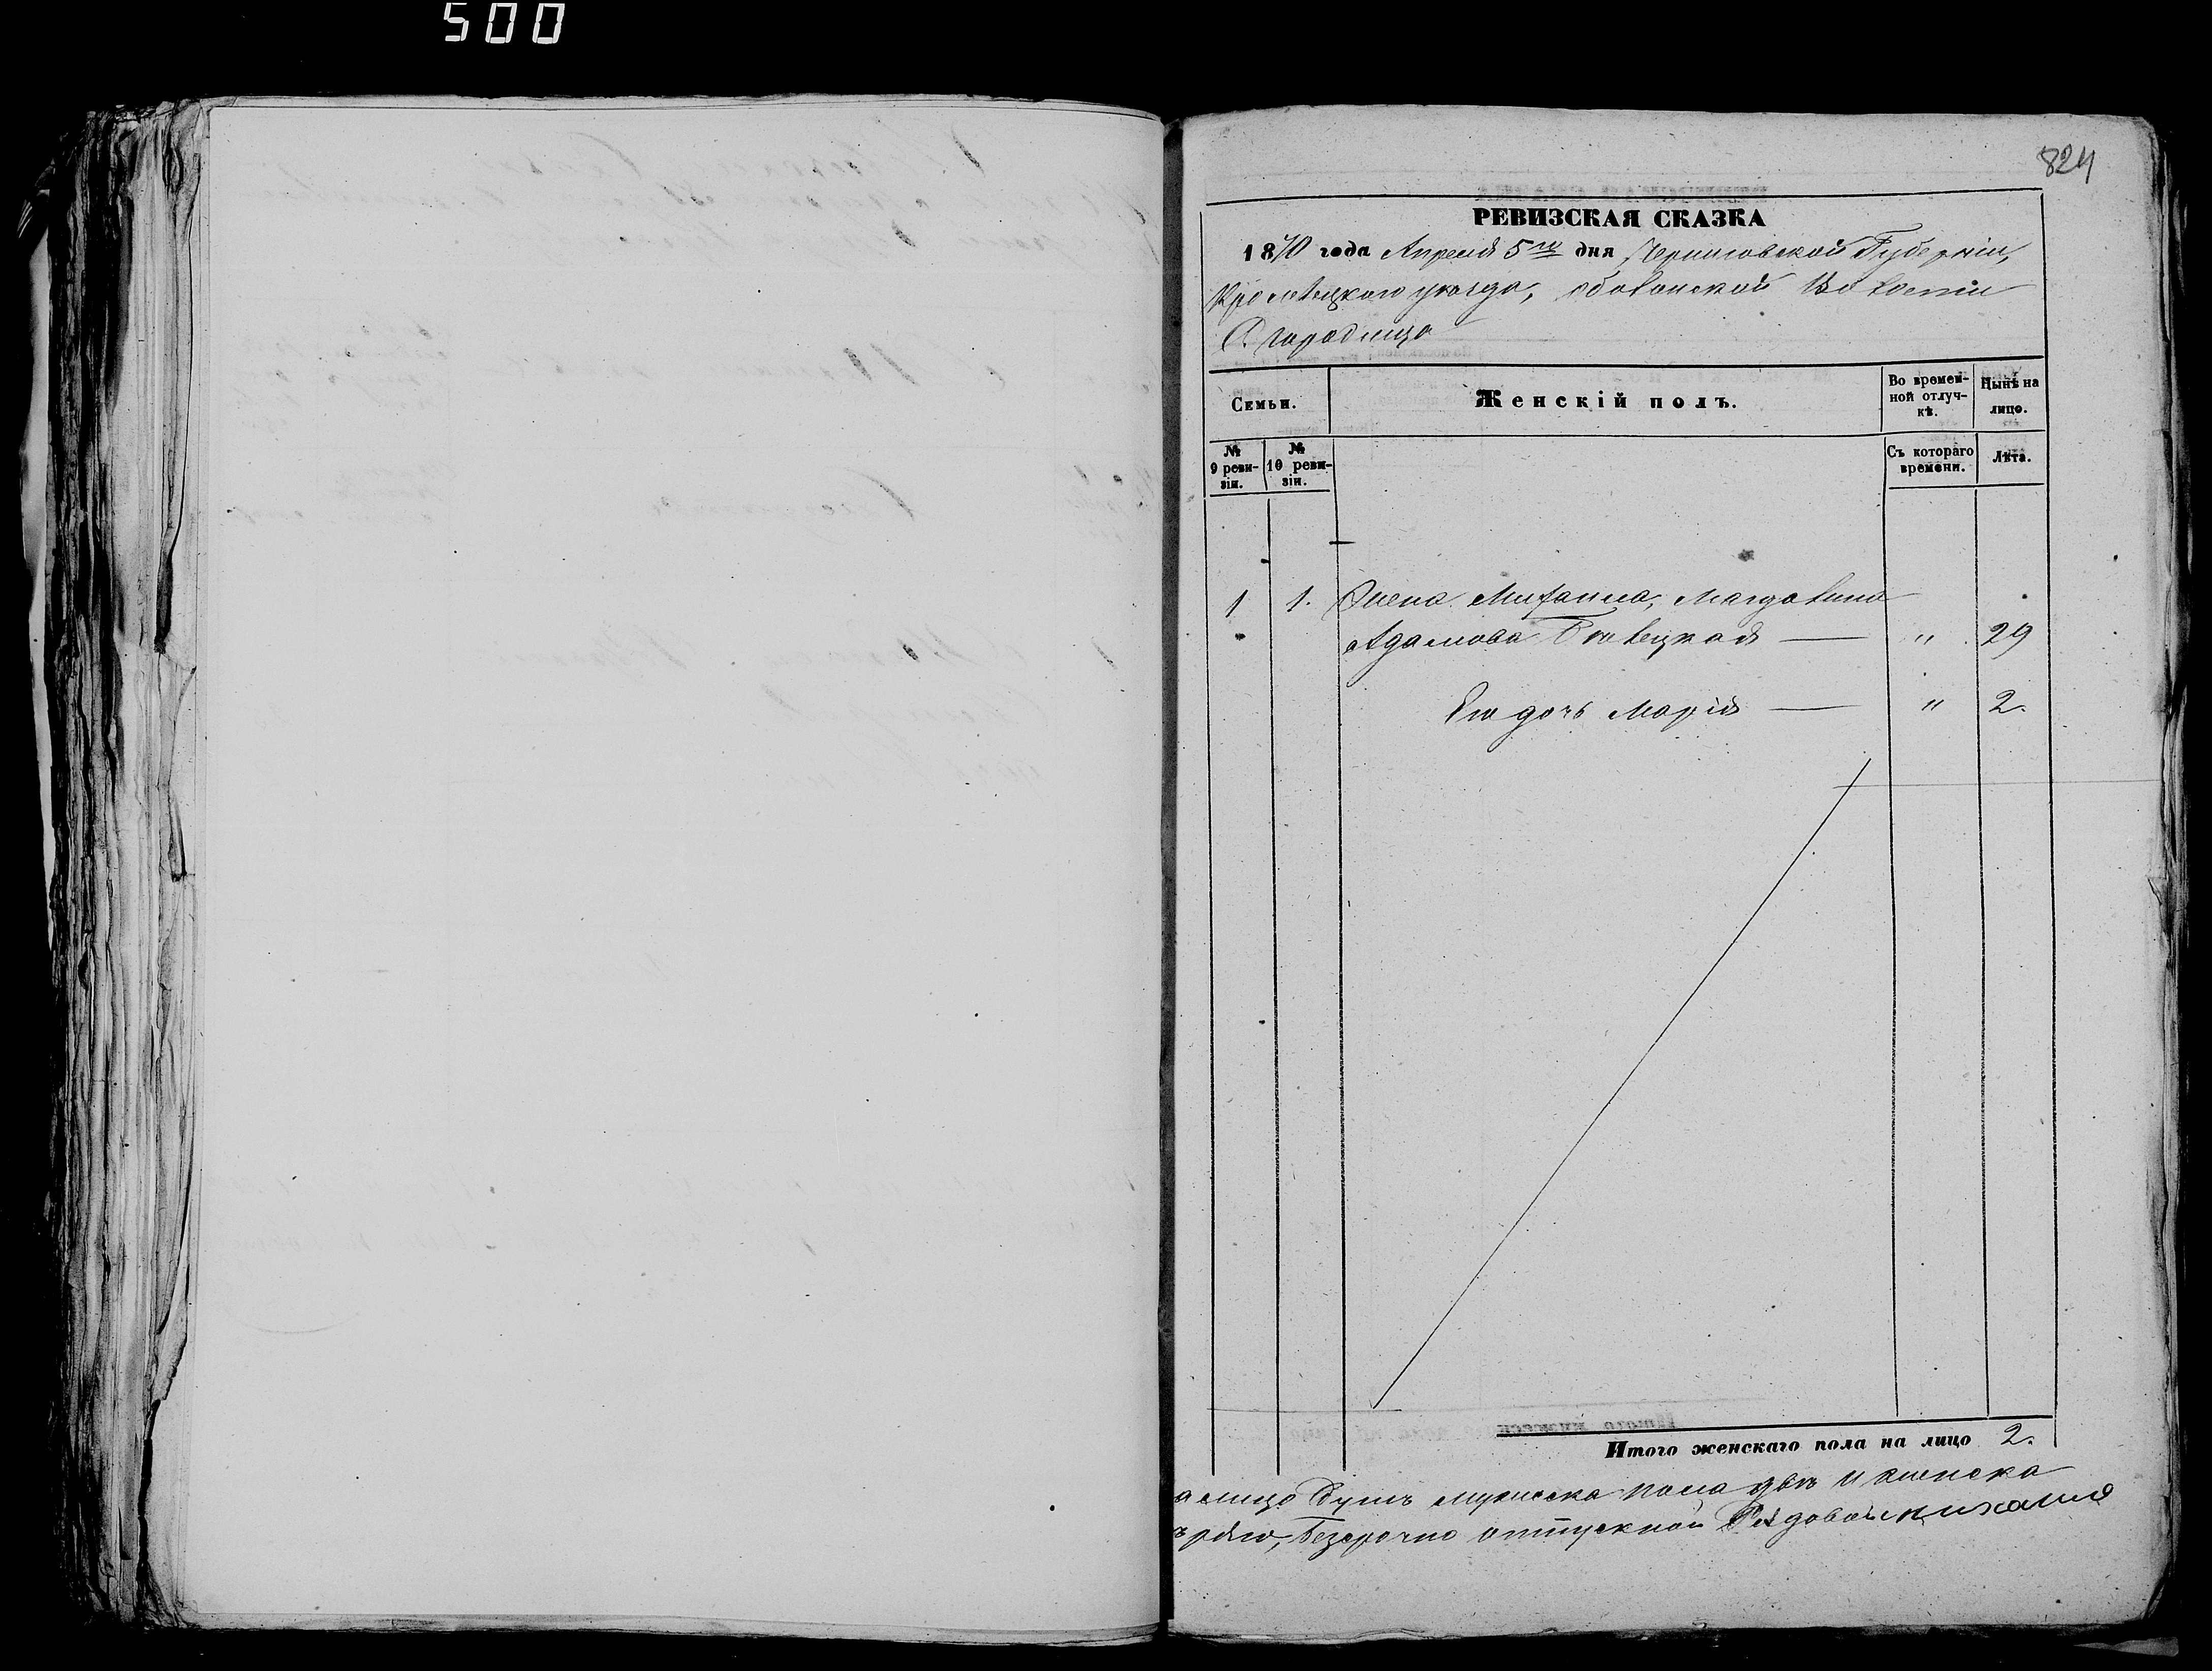 500
824
РЕВИЗСКАЯ СКАЗКА
1870 года Апреля 5го дня Черниговской Губерніи,
Кролевецкаго уѣзда, Оболонской Волости
С. городища
Семьи.
Женскій полъ.
Во времен-
ной отлуч-
кѣ.
Нынѣ на
лицо.
№
9 реви-
зіи.
№
10 реви-
зіи.
Съ котораго
времени.
Лѣта.
1 1. Жена Михаила, Магдалина
Адамова " 29
Его дочь Марія " 2.
Итого женскаго пола на лицо 2.
а лицо Душъ мужеска пола двѣ и женска
безсрочно отпускной Рядовой Михаила